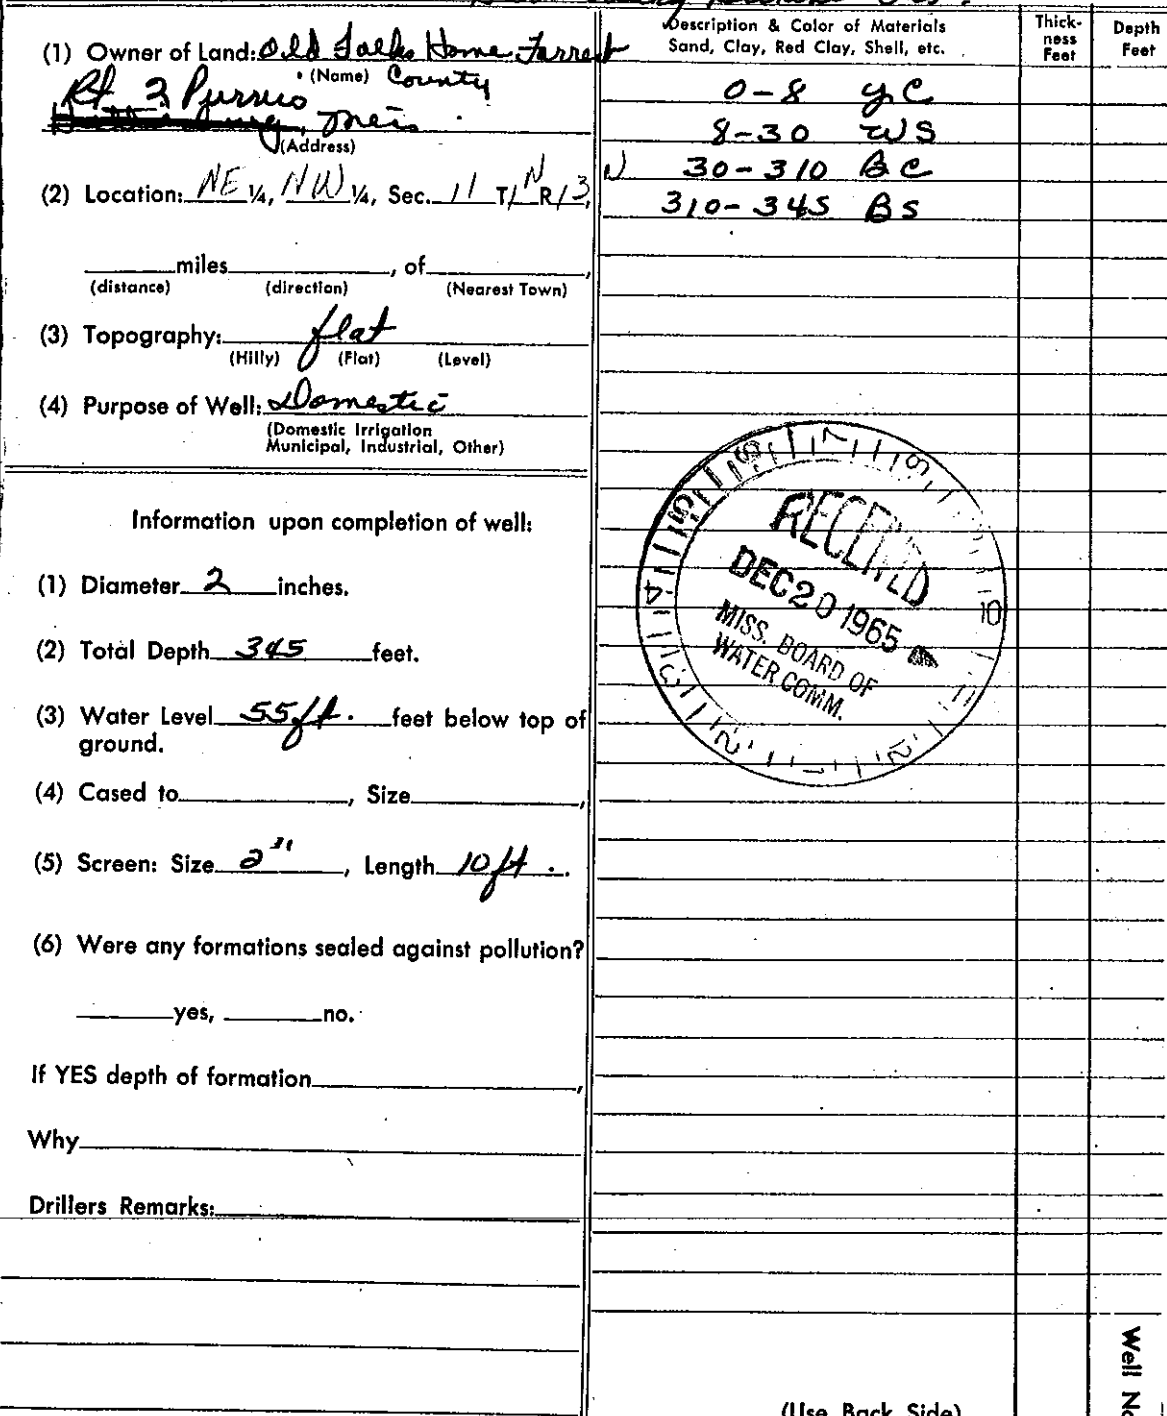 (1) Owner of Land: Old Folks Home Forrest
(Name) County
Rt 3 Purvis
Miss
(Address)
(2) Location: NE ¼, NW ¼, Sec. 11 T1N R13
miles , of ,
(distance) (direction) (Nearest Town)
(3) Topography: flat
(Hilly) (Flat) (Level)
(4) Purpose of Well: Domestic
(Domestic Irrigation
Municipal, Industrial, Other)
Information upon completion of well:
(1) Diameter 2 inches.
(2) Total Depth 345 feet.
(3) Water Level 55 ft. feet below top of
ground.
(4) Cased to , Size ,
(5) Screen: Size 2", Length 10 ft.
(6) Were any formations sealed against pollution?
yes, no.
If YES depth of formation ,
Why
Drillers Remarks:
Description & Color of Materials
Sand, Clay, Red Clay, Shell, etc.
Thick-
ness
Feet
Depth
Feet
0-8 YC
8-30 WS
N 30-310 BC
310-345 BS
RECEIVED
DEC 20 1965
MISS. BOARD OF
WATER COMM.
Well No
(Use Back Side)